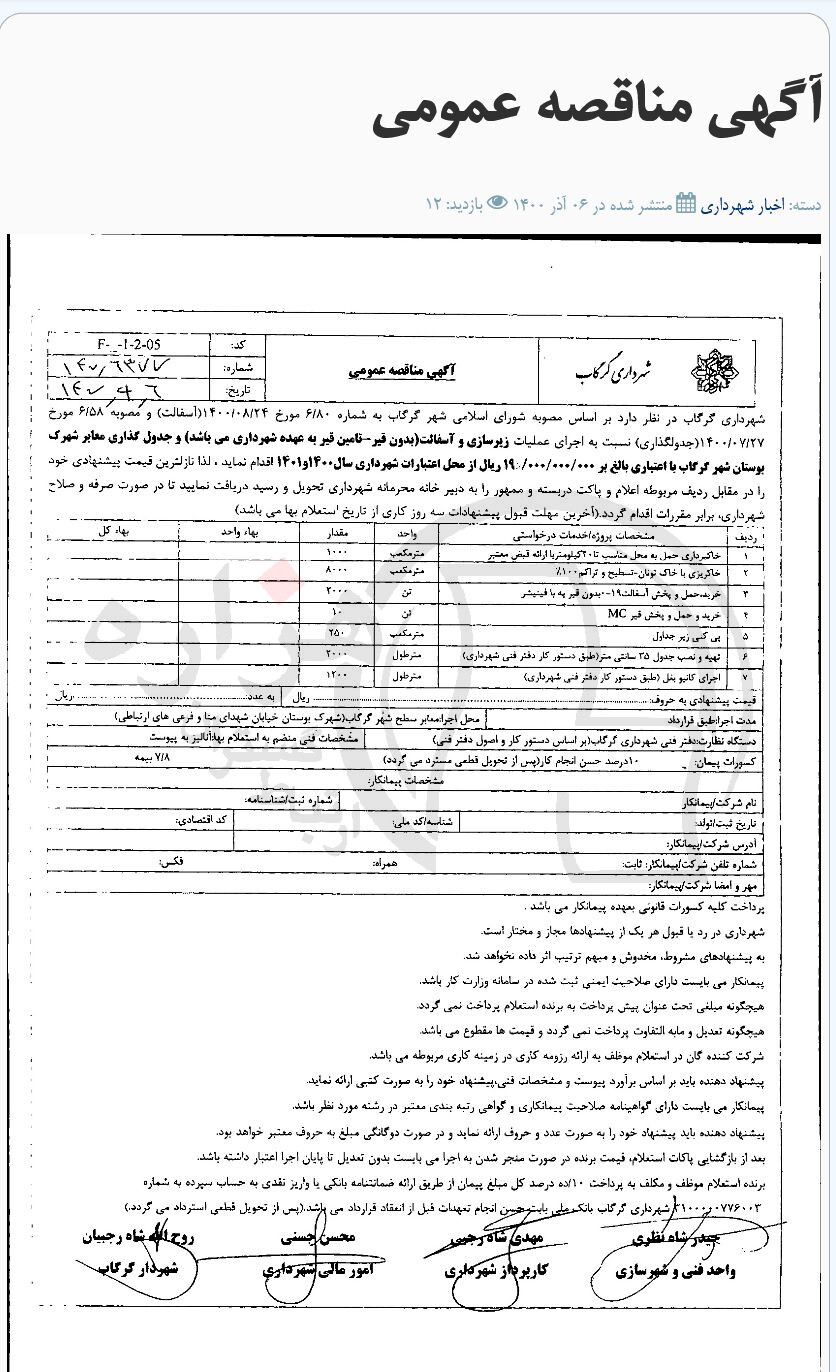 آگهی مناقصه عمومی
دسته: اخبار شهرداری منتشر شده در ۰۶ آذر ۱۴۰۰ بازدید: ۱۲
شهرداری گرگاب
آگهی مناقصه عمومی
کد: F-_-1-2-05
شماره:
تاریخ:
شهرداری گرگاب در نظر دارد بر اساس مصوبه شورای اسلامی شهر گرگاب به شماره ۶/۸۰ مورخ ۱۴۰۰/۰۸/۲۴(آسفالت) و مصوبه ۶/۵۸ مورخ
۱۴۰۰/۰۷/۲۷(جدولگذاری) نسبت به اجرای عملیات زیرسازی و آسفالت(بدون قیر-تامین قیر به عهده شهرداری می باشد) و جدول گذاری معابر شهرک
بوستان شهر گرگاب با اعتباری بالغ بر ۱۹/۰۰۰/۰۰۰/۰۰۰ ریال از محل اعتبارات شهرداری سال۱۴۰۰و۱۴۰۱ اقدام نماید ، لذا نازلترین قیمت پیشنهادی خود
را در مقابل ردیف مربوطه اعلام و پاکت دربسته و ممهور را به دبیر خانه محرمانه شهرداری تحویل و رسید دریافت نمایید تا در صورت صرفه و صلاح
شهرداری، برابر مقررات اقدام گردد.(آخرین مهلت قبول پیشنهادات سه روز کاری از تاریخ استعلام بها می باشد)
ردیف مشخصات پروژه/خدمات درخواستی واحد مقدار بهاء واحد بهاء کل
۱ خاکبرداری حمل به محل مناسب تا۲۰کیلومتربا ارائه قبض معتبر مترمکعب ۱۰۰۰
۲ خاکریزی با خاک تونان-تسطیح و تراکم۱۰۰٪ مترمکعب ۸۰۰۰
۳ خرید،حمل و پخش آسفالت۱۹-۰بدون قیر په با فینیشر تن ۲۰۰۰
۴ خرید و حمل و پخش قیر MC تن ۱۰
۵ پی کنی زیر جداول مترمکعب ۲۵۰
۶ تهیه و نصب جدول ۳۵ سانتی متر(طبق دستور کار دفتر فنی شهرداری) مترطول ۲۰۰۰
۷ اجرای کانیو بغل (طبق دستور کار دفتر فنی شهرداری) مترطول ۱۲۰۰
قیمت پیشنهادی به حروف: ریال به عدد: ریال.
مدت اجرا:طبق قرارداد محل اجرا:معابر سطح شهر گرگاب(شهرک بوستان خیابان شهدای منا و فرعی های ارتباطی)
دستگاه نظارت:دفتر فنی شهرداری گرگاب(بر اساس دستور کار و اصول دفتر فنی) مشخصات فنی منضم به استعلام بها:آنالیز به پیوست
کسورات پیمان: ۱۰درصد حسن انجام کار(پس از تحویل قطعی مسترد می گردد) ۷/۸ بیمه
مشخصات پیمانکار:
نام شرکت/پیمانکار شماره ثبت/شناسنامه:
تاریخ ثبت/تولد: شناسه/کد ملی: کد اقتصادی:
آدرس شرکت/پیمانکار:
شماره تلفن شرکت/پیمانکار: ثابت: همراه: فکس:
مهر و امضا شرکت/پیمانکار:
پرداخت کلیه کسورات قانونی بعهده پیمانکار می باشد .
شهرداری در رد یا قبول هر یک از پیشنهادها مجاز و مختار است.
به پیشنهادهای مشروط، مخدوش و مبهم ترتیب اثر داده نخواهد شد.
پیمانکار می بایست دارای صلاحیت ایمنی ثبت شده در سامانه وزارت کار باشد.
هیچگونه مبلغی تحت عنوان پیش پرداخت به برنده استعلام پرداخت نمی گردد.
هیچگونه تعدیل و مابه التفاوت پرداخت نمی گردد و قیمت ها مقطوع می باشد.
شرکت کننده گان در استعلام موظف به ارائه رزومه کاری در زمینه کاری مربوطه می باشد.
پیشنهاد دهنده باید بر اساس برآورد پیوست و مشخصات فنی،پیشنهاد خود را به صورت کتبی ارائه نماید.
پیمانکار می بایست دارای گواهینامه صلاحیت پیمانکاری و گواهی رتبه بندی معتبر در رشته مورد نظر باشد.
پیشنهاد دهنده باید پیشنهاد خود را به صورت عدد و حروف ارائه نماید و در صورت دوگانگی مبلغ به حروف معتبر خواهد بود.
بعد از بازگشایی پاکات استعلام، قیمت برنده در صورت منجر شدن به اجرا می بایست بدون تعدیل تا پایان اجرا اعتبار داشته باشد.
برنده استعلام موظف و مکلف به پرداخت ۱۰/ده درصد کل مبلغ پیمان از طریق ارائه ضمانتنامه بانکی یا واریز نقدی به حساب سپرده به شماره
شهرداری گرگاب بانک ملی بابت حسن انجام تعهدات قبل از انعقاد قرارداد می باشد.(پس از تحویل قطعی استرداد می گردد.)
حیدر شاه نظری مهدی شاه رجبی محسن حسنی روح الله شاه رجبیان
واحد فنی و شهرسازی کارپرداز شهرداری امور مالی شهرداری شهردار گرگاب